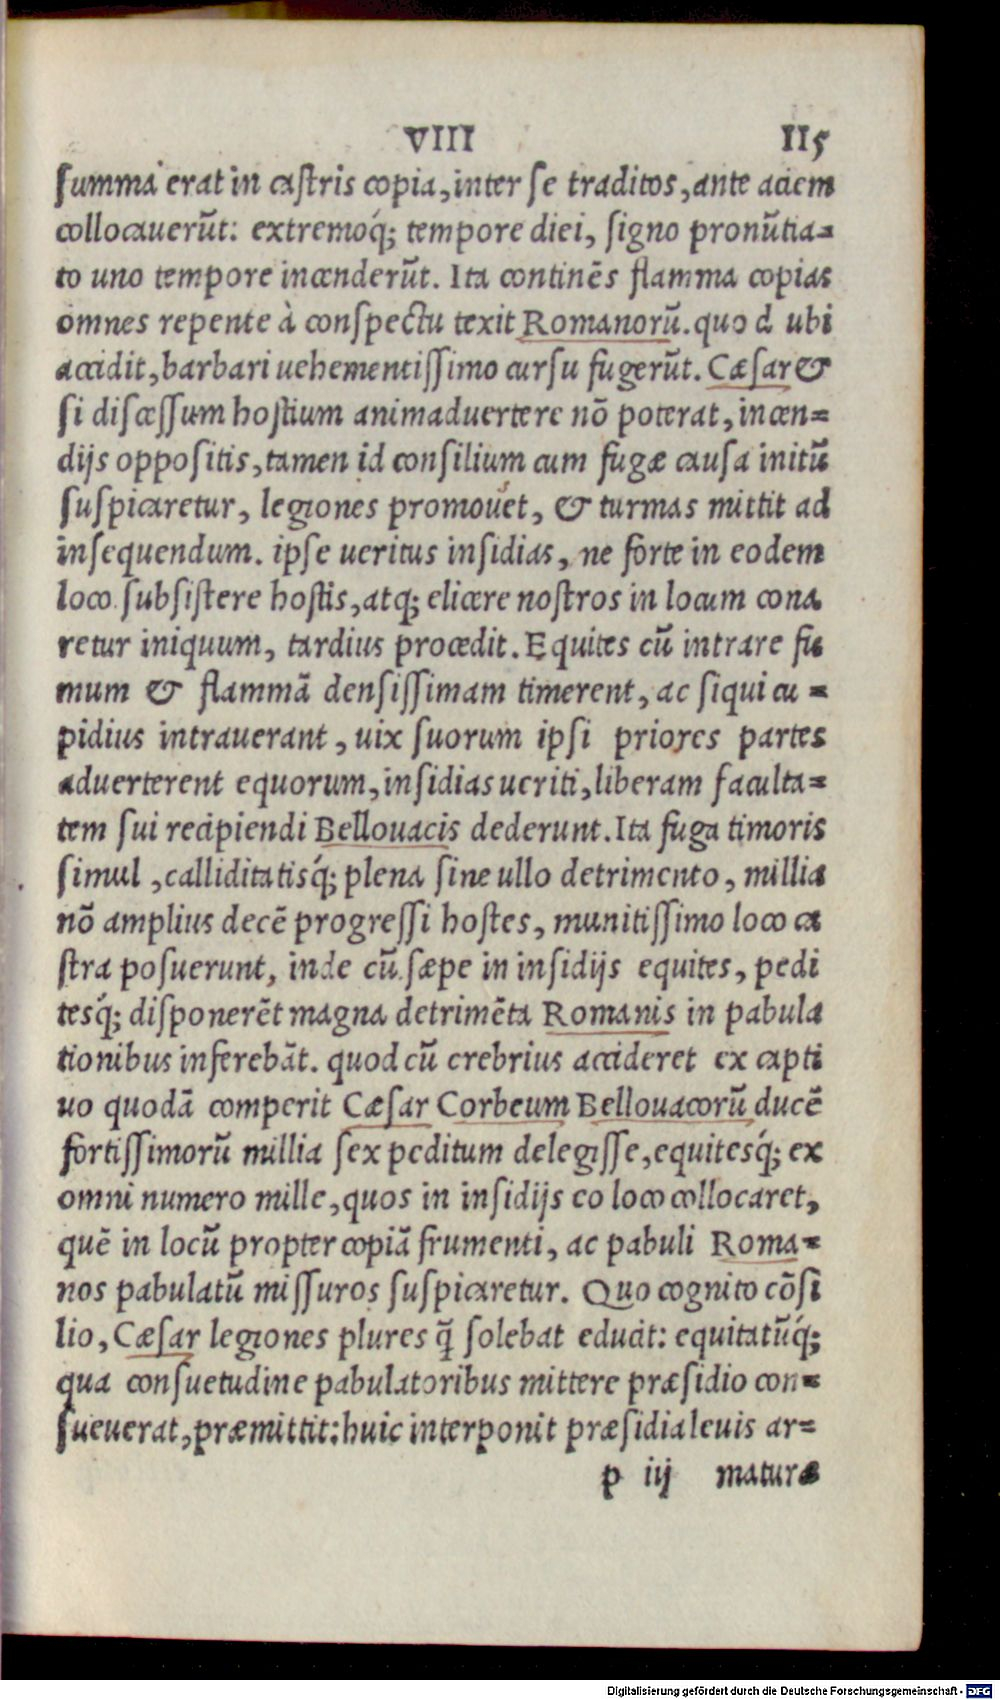 VIII 115
summa erat in castris copia, inter se traditos, ante aciem
collocauerūt: extremoq́; tempore diei, signo pronūtia-
to uno tempore incenderūt. Ita continēs flamma copias
omnes repente à conspectu texit Romanorū. quod ubi
accidit, barbari uehementissimo cursu fugerūt. Cæsar &
si discessum hostium animaduertere nō poterat, incen-
dijs oppositis, tamen id consilium cum fugæ causa initū
suspicaretur, legiones promouet, & turmas mittit ad
insequendum. ipse ueritus insidias, ne forte in eodem
loco subsistere hostis, atq; elicere nostros in locum cona
retur iniquum, tardius procedit. Equites cū intrare fu
mum & flammā densissimam timerent, ac siqui cu-
pidius intrauerant, uix suorum ipsi priores partes
aduerterent equorum, insidias ueriti, liberam faculta-
tem sui recipiendi Bellouacis dederunt. Ita fuga timoris
simul, calliditatisq́; plena sine ullo detrimento, millia
nō amplius decē progressi hostes, munitissimo loco ca
stra posuerunt, inde cū sæpe in insidijs equites, pedi
tesq́; disponerēt magna detrimēta Romanis in pabula
tionibus inferebāt. quod cū crebrius accideret ex capti
uo quodā comperit Cæsar Corbeum Bellouacorū ducē
fortissimorū millia sex peditum delegisse, equitesq́; ex
omni numero mille, quos in insidijs eo loco collocaret,
quē in locū propter copiā frumenti, ac pabuli Roma-
nos pabulatū missuros suspicaretur. Quo cognito cōsi
lio, Cæsar legiones plures q̄ solebat educit: equitatūq́;
qua consuetudine pabulatoribus mittere præsidio con-
sueuerat, præmittit: huic interponit præsidia leuis ar-
p iij maturæ
Digitalisierung gefördert durch die Deutsche Forschungsgemeinschaft - DFG